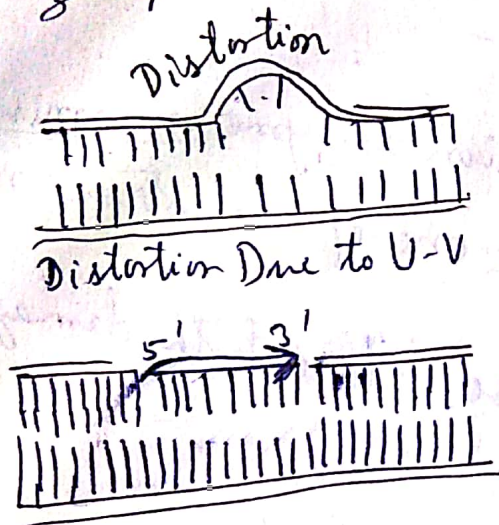 Distortion
Distortion Due to U-V
5' 3'